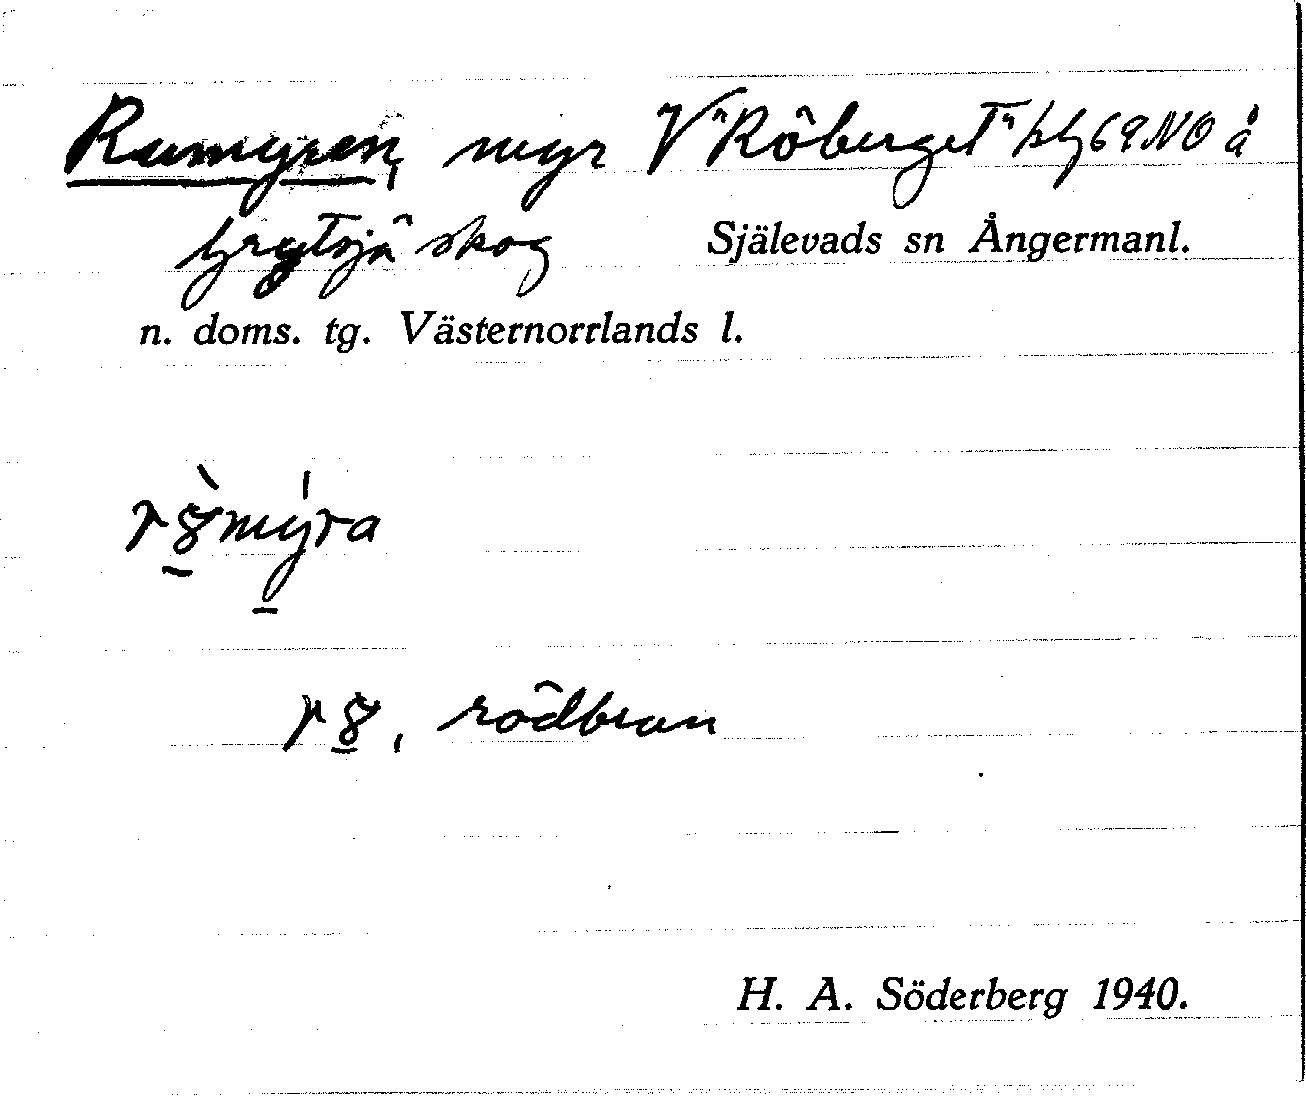 Rumyren, myr V "Röberget" htg 69 NO å
Grytsjö skog Själevads sn Ångermanl.
n. doms. tg. Västernorrlands l.
rèmýra
rö, rödbrun
H. A. Söderberg 1940.